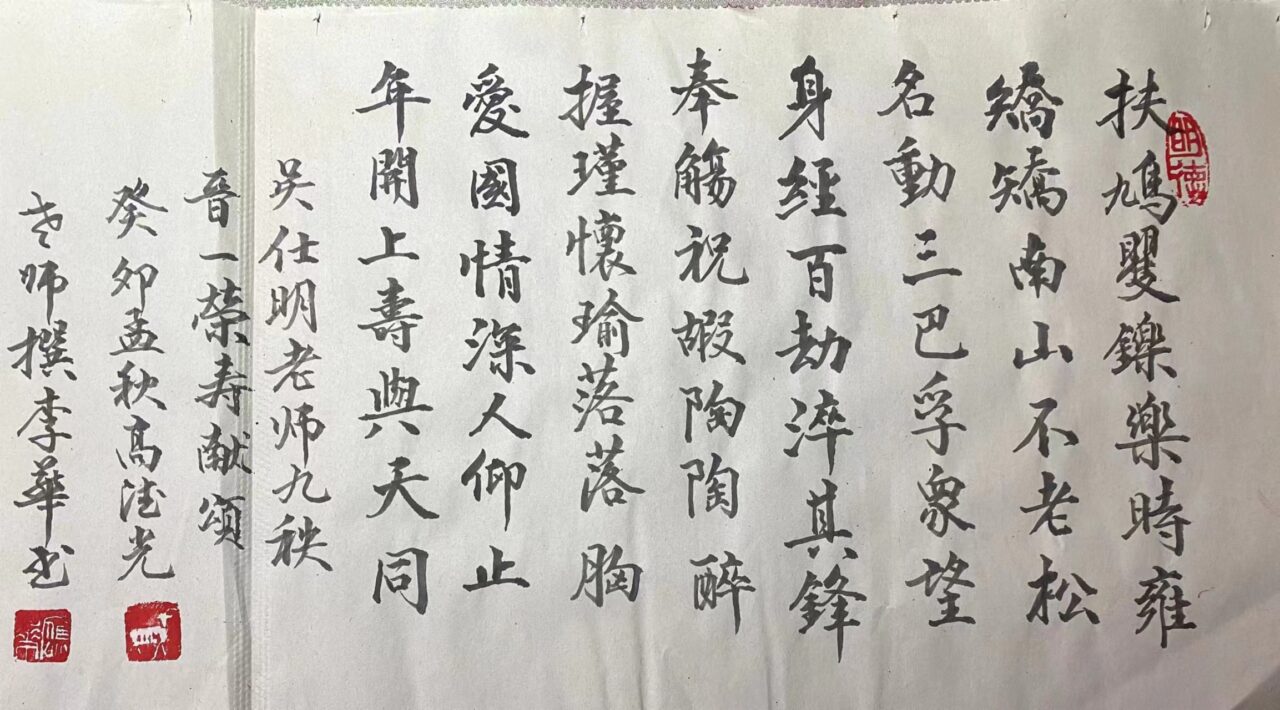 扶鳩矍鑠樂時雍
矯矯南山不老松
名動三巴孚象望
身經百劫淬其鋒
奉觴祝嘏陶陶醉
握瑾懷瑜落落胸
愛國情深人仰止
年開上壽與天同
吴仕明老师九秩
晋一榮寿献頌
癸卯孟秋高德光
老师撰李華书
明德